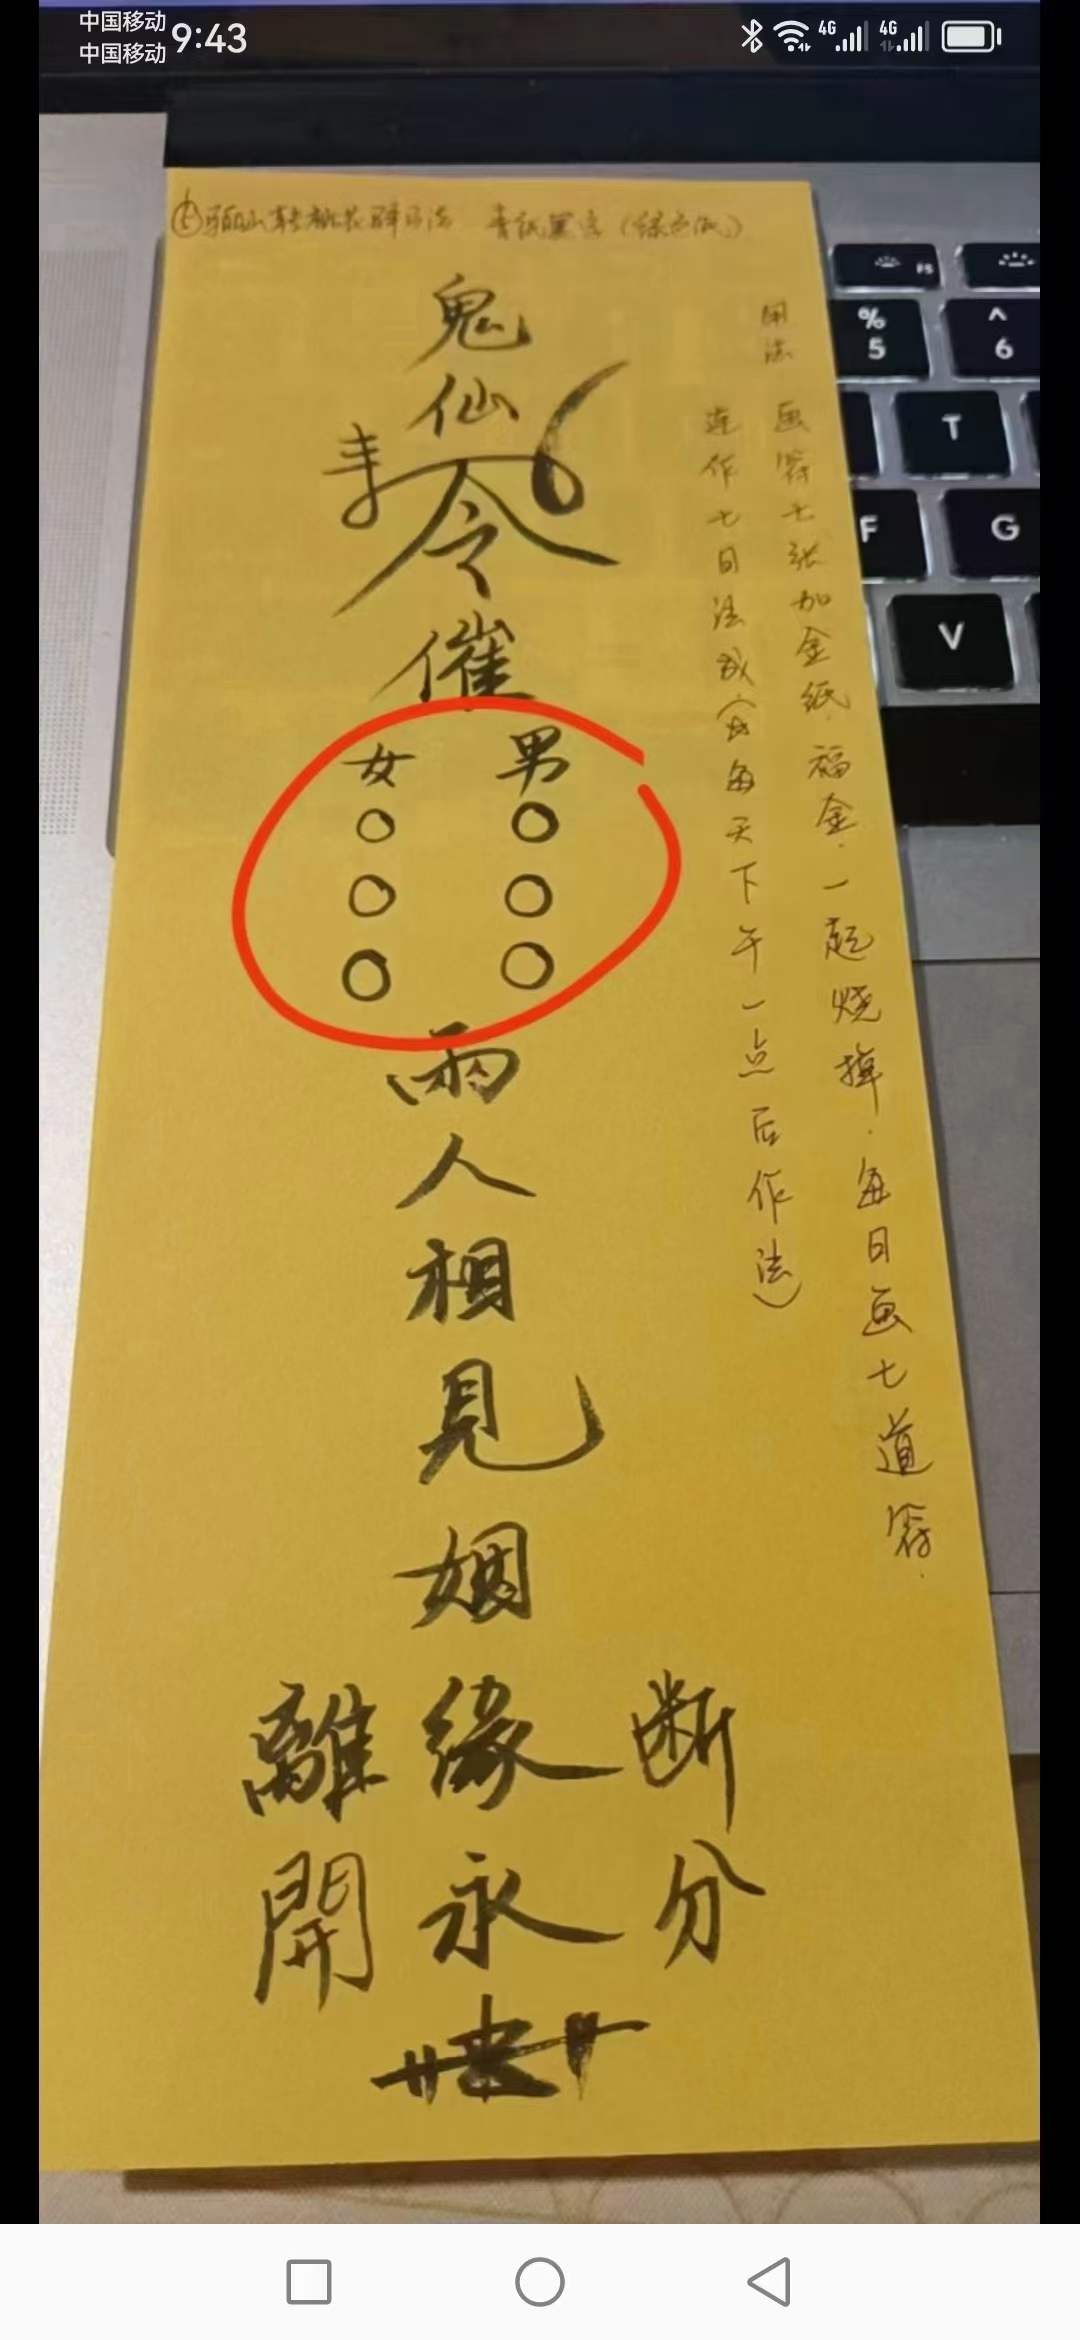 中国移动
中国移动
9:43
4G
4G
青紙黑字
鬼
仙
令
催
男
女
○ ○
○ ○
○ ○
兩
人
相
見
姻
緣
永
離開
断分
用法
画符七张加金纸.福金.一起烧掉.每日画七道符.
连作七日法成(每天下午一点后作法)
F5
%
5
^
6
T
F
G
V